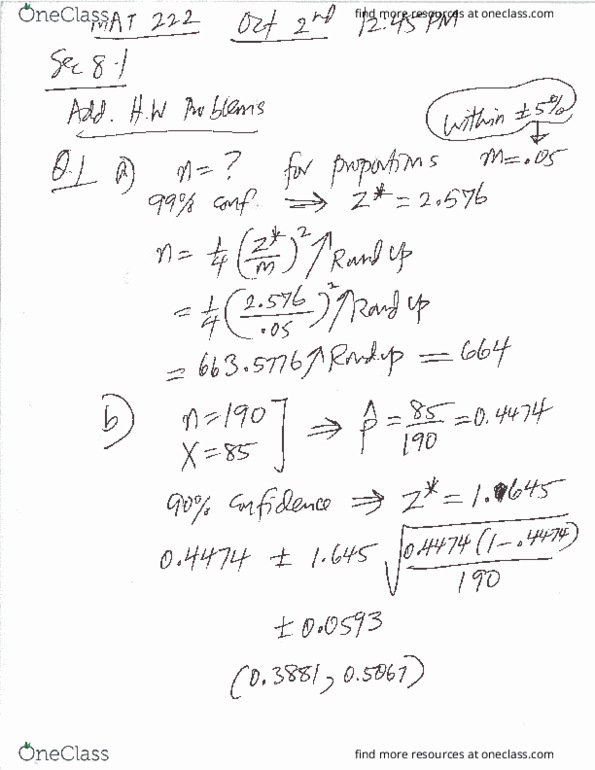 OneClass
find more resources at oneclass.com
MAT 222 Oct 2nd 12.45 PM
Sec 8.1
Add. H.W Problems
within ±5%
Q.1 a) n = ? for proportions m = .05
99% conf. ⇒ Z* = 2.576
n = 1/4 (Z*/m)² ↑ Round up
= 1/4 (2.576/.05)² ↑ Round up
= 663.5776 ↑ Round up = 664
b) n = 190
X = 85 ] ⇒ p̂ = 85/190 = 0.4474
90% Confidence ⇒ Z* = 1.645
0.4474 ± 1.645 √(0.4474(1-.4474)/190)
± 0.0593
(0.3881, 0.5067)
OneClass
find more resources at oneclass.com